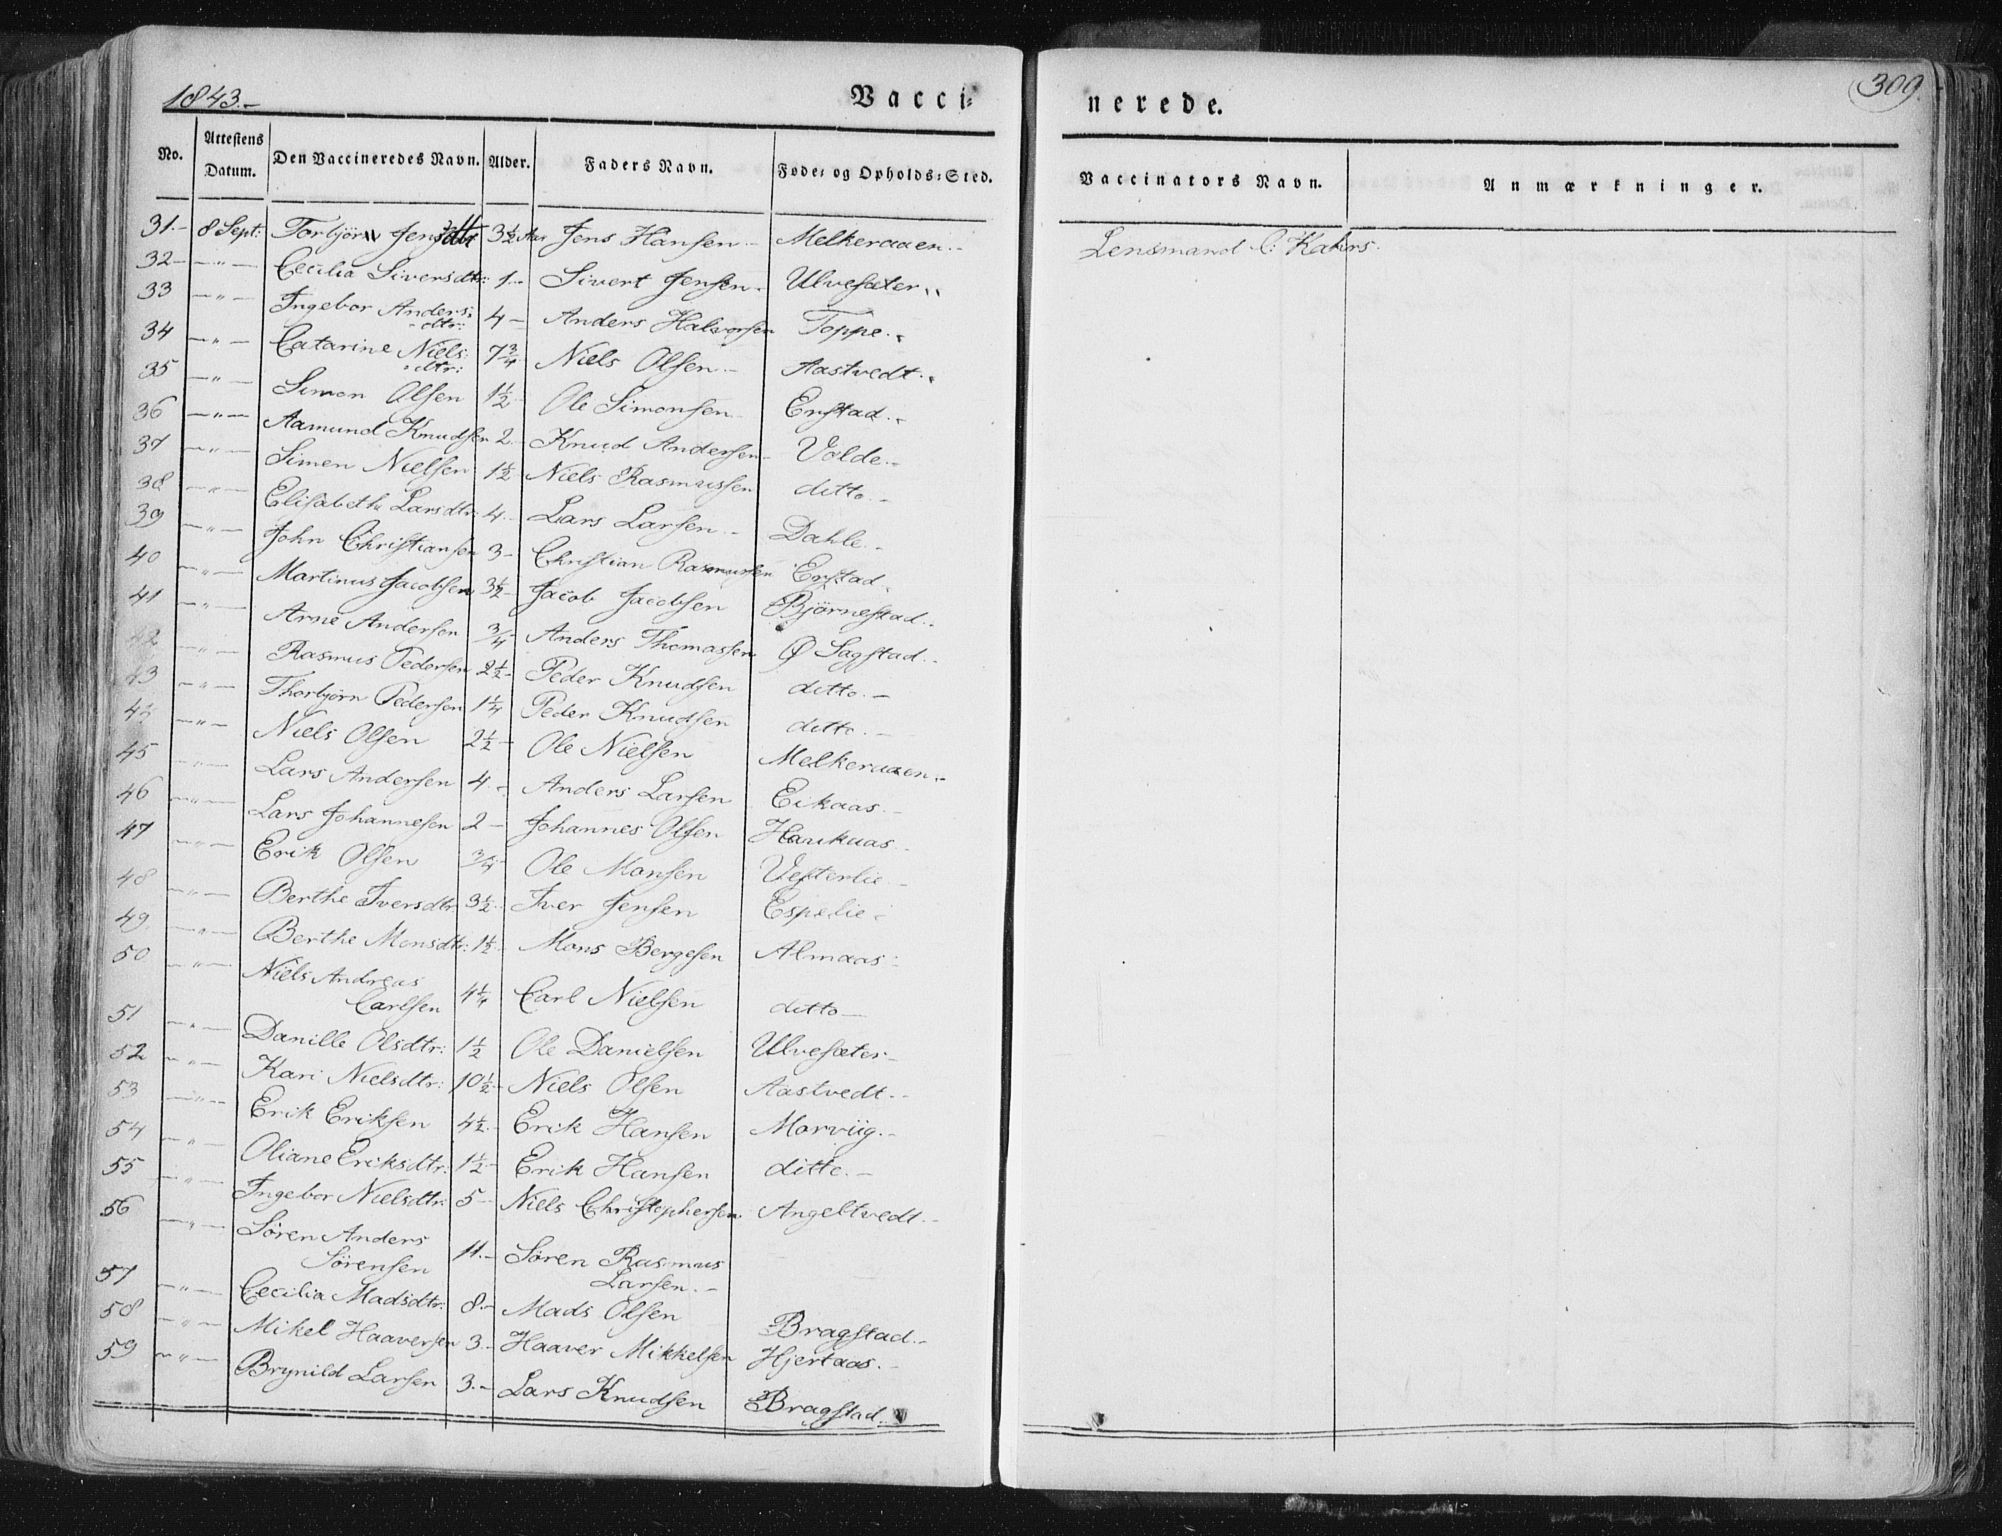 1843.-
Vacci-
nerede.
309.
No. Attestens Datum. Den Vaccineredes Navn. Alder. Faders Navn. Føde- og Opholds-Sted. Vaccinators Navn. Anmærkninger.
31.- 8 Sept: Torbjörn 3½ Aar Jens Hansen - Melkeraaen.- Lensmand C: Kahrs.
32- -"- Cecilia Siversdtr: 1- Sivert Jensen. Ulvesæter"
33 -"- Ingebor Anders:
dtr: 4- Anders Halvorsen Toppe.-
34 -"- Catarine Niels:
dtr: 7¾ Niels Olsen- Aastvedt.-
35 -"- Simon Olsen 1½ Ole Simonsen Erstad.-
36 -"- Aamund Knudsen 2.- Knud Andersen- Volde.-
37 -"- Simen Nielsen 1½ Niels Rasmussen ditto.-
38 -"- Elisabeth Larsdtr: 4.- Lars Larsen.- Dahle.-
39 -"- John Christiansen 3- Christian Rasmussen Erstad.
40 -"- Martinus Jacobsen 3½- Jacob Jacobsen Björnestad.-
41 -"- Arne Andersen ¾- Anders Thomassen Ø Sagstad.-
42 -"- Rasmus Pedersen 2½- Peder Knudsen ditto.-
43 -"- Thorbjørn Pedersen 1¼ Peder Knudsen ditto.-
44 -"- Niels Olsen 2½- Ole Nielsen Melkeraaen.-
45 -"- Lars Andersen 4.- Anders Larsen Eikaas.-
46 -"- Lars Johannesen 2- Johannes Olsen Haukaas.-
47 -"- Erik Olsen ¾- Ole Monsen Vesterlie.-
48 -"- Berthe Iversdtr 3½- Iver Jensen Espelie-
49. -"- Berthe Monsdtr: 1½- Mons Bergesen Almaas-
50 -"- Niels Andreas
Carlsen 4¼ Carl Nielsen ditto-
51 -"- Danille Olsdtr: 1½ Ole Danielsen Ulvesæter-
52 -"- Kari Nielsdtr: 10½- Niels Olsen Aastvedt.-
53 -"- Erik Eriksen 4½- Erik Hansen Morviig.-
54 -"- Oliane Eriksdtr: 1½- Erik Hansen ditto.-
55 -"- Ingebor Nielsdtr: 5- Niels Christophersen Angeltvedt.-
56 -"- Søren Anders
Sørensen 11.- Søren Rasmus
Larsen.-
57 -"- Cecilia Madsdtr: 8.- Mads Olsen Bragstad.-
58 -"- Mikel Haaversen 3.- Haaver Mikkelsen Hjertaas.-
59 -"- Brynild Larsen 3.- Lars Knudsen Bragstad.